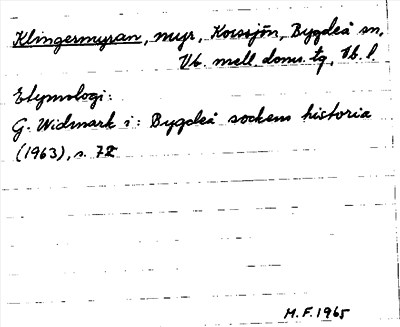 Klingermyran, myr, Korssjön, Bygdeå sn,
Vb. mell. doms. tg, Vb. l.
Etymologi:
G. Widmark i: Bygdeå sockens historia
(1963), s. 72
M.F. 1965